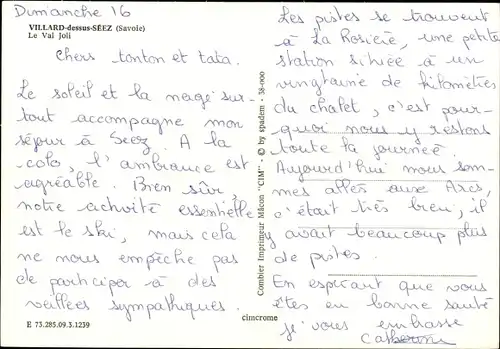 Dimanche 16
VILLARD-dessus-SÉEZ (Savoie)
Le Val Joli
Chers tonton et tata.
Le soleil et la neige sur-
tout accompagne mon
séjour à Séez. A la
colo l'ambiance est
agréable. Bien sûr,
notre activité essentielle
est le ski, mais cela
ne nous empêche pas
de participer à des
veillées sympathiques.
E 73.285.09.3.1239
Combier Imprimeur Mâcon "CIM" - © by spadem - 38-000
cimcrome
Les pistes se trouvent
à La Rosière, une petite
station située à un
vingtaine de kilomètres
du chalet, c'est pour-
quoi nous y restons
toute la journée.
Aujourd'hui nous som-
mes allés aux Arcs,
c'était très bien, il
y avait beaucoup plus
de pistes.
En espérant que vous
êtes en bonne santé
je vous embrasse
Catherine